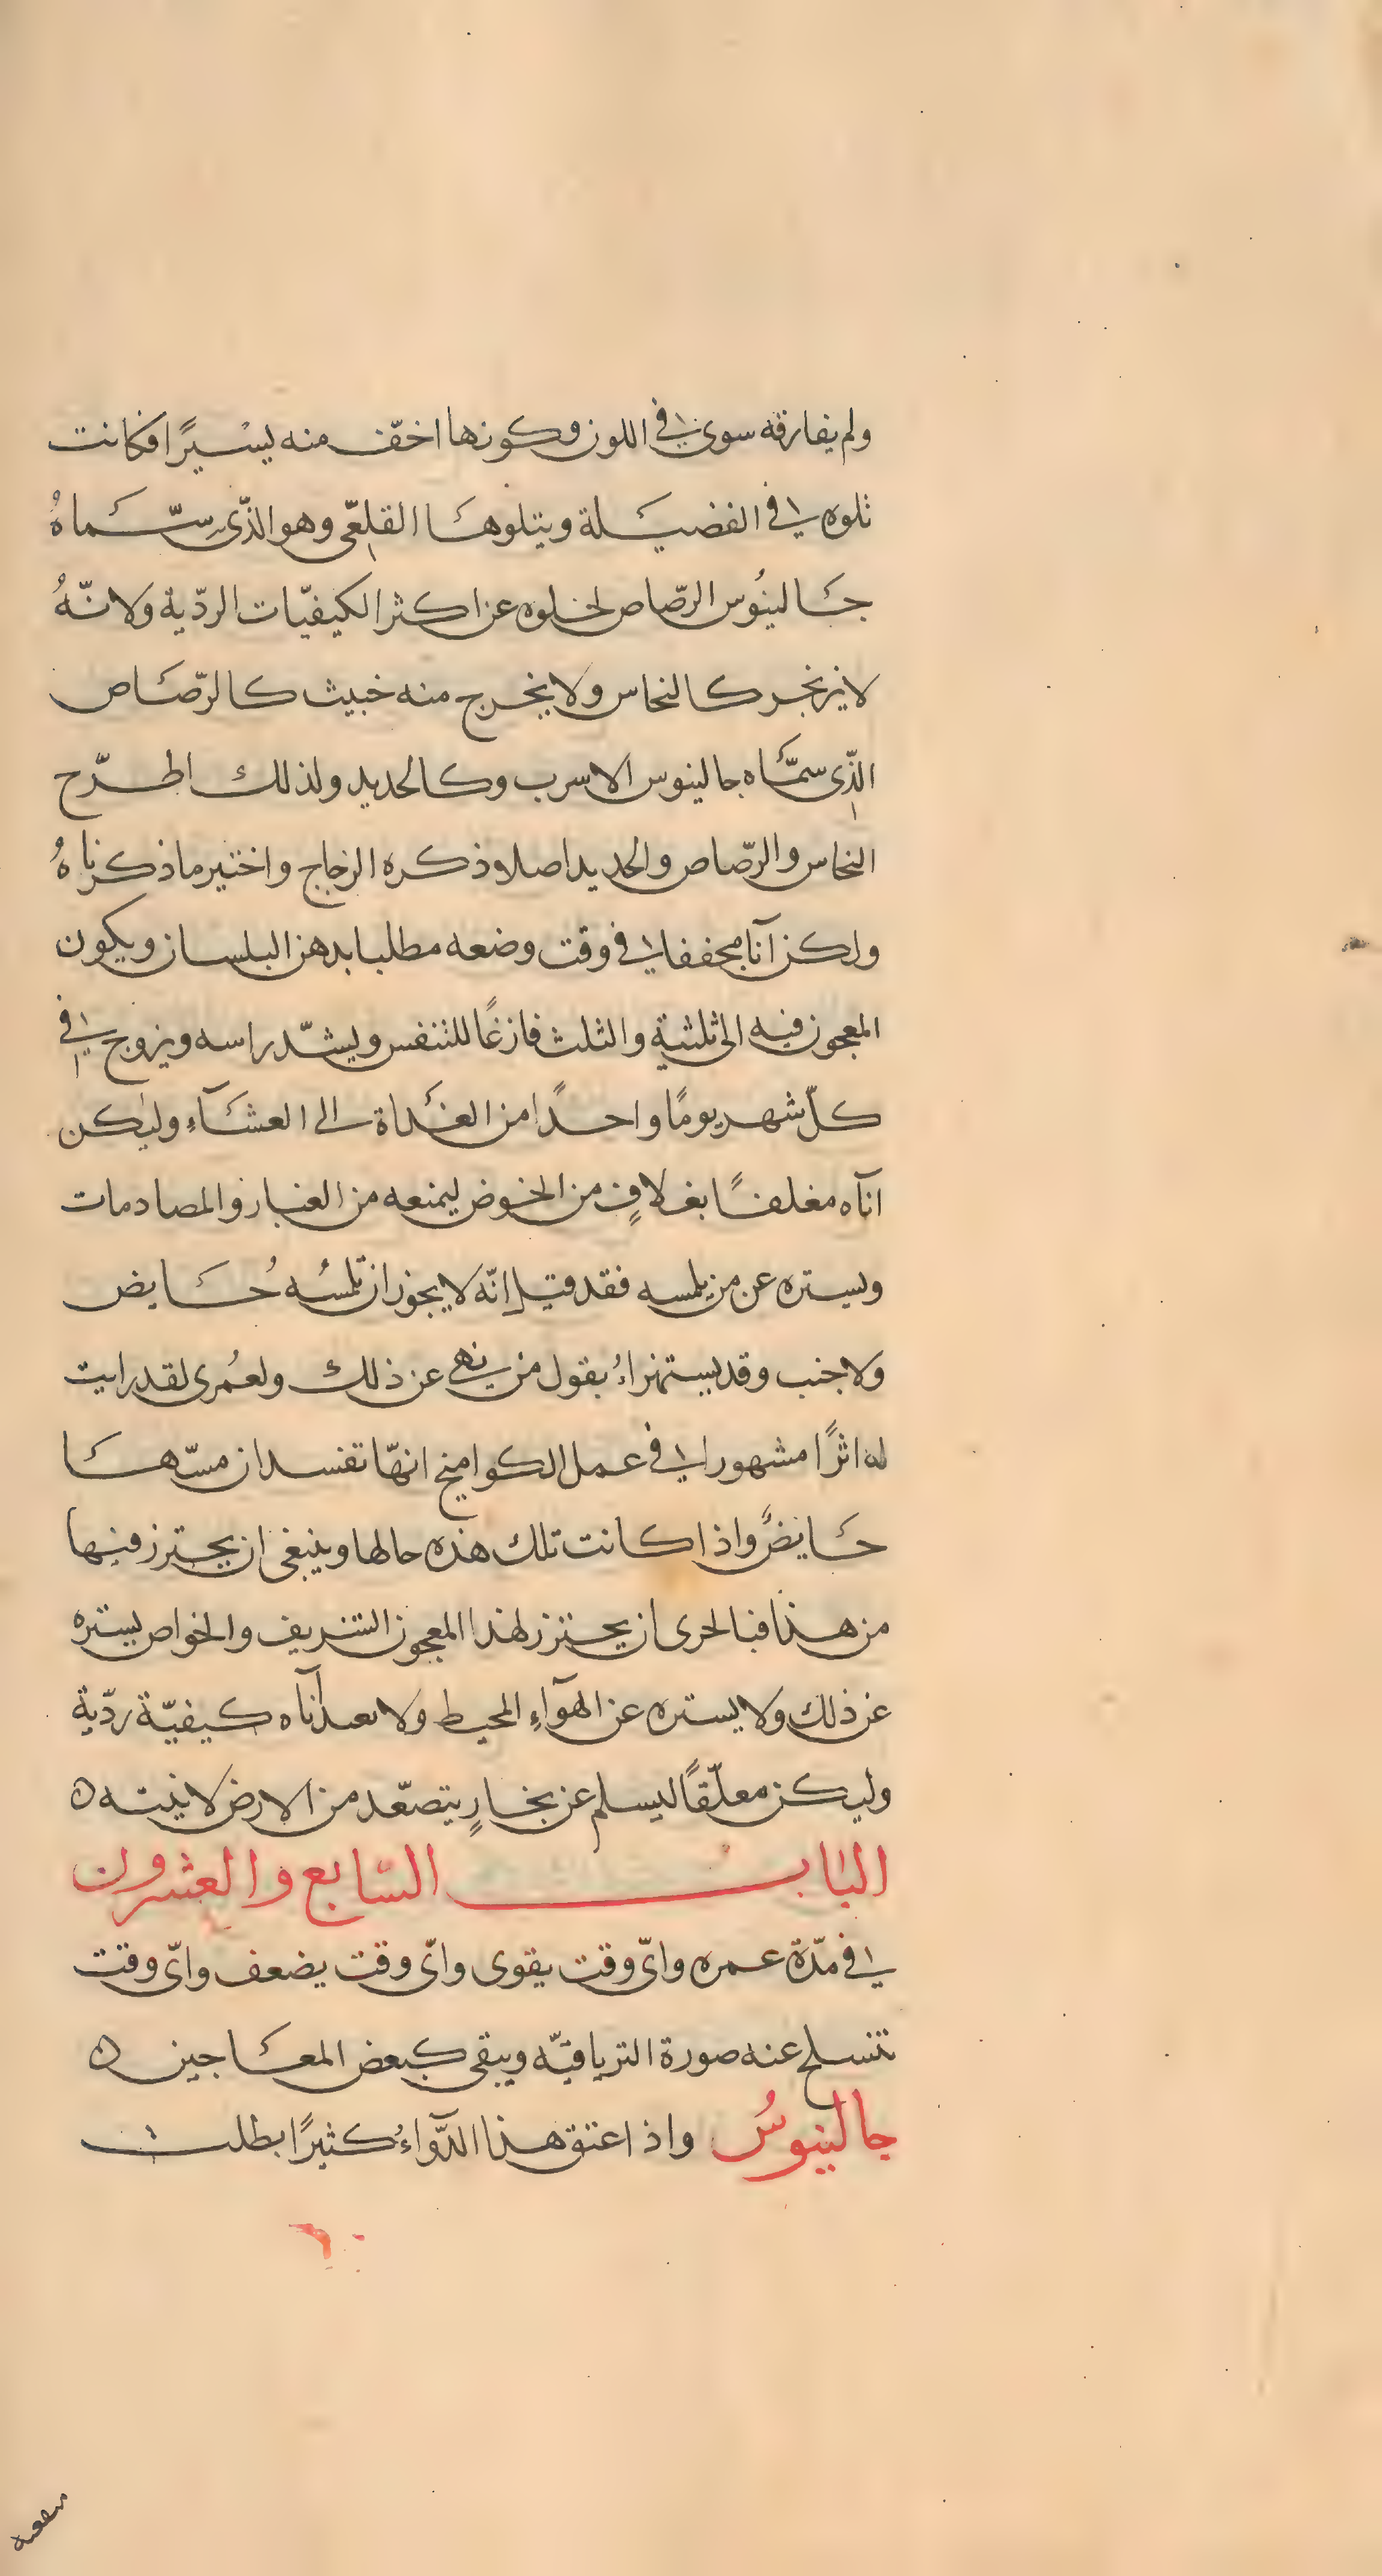 ولم يفارقه سوى في اللون وكونها اخفّ منه يسيرًا فكانت
تلوه في الفضيلة ويتلوها القلعّى وهو الذّى سمّاهُ
جالينُوس الرصّاص لخلوه عن اكثر الكيفيّات الردّية ولانّهُ
لا يزنجر كالنحاس ولا يخرج منه خبيث كالرّصَاص
الذّى سمّاه جالينوس الاسرب وكالحديد ولذلك اطّرح
النحاس والرّصاص والحديد اصلا وذكره الزجاج واختير ما ذكرناهُ
ولكن آنا مجففا في وقت وضعه مطليا بدهن البلسان ويكون
المعجون فيه الى ثلثية والثلث فارغًا للتنفس ويشدّ راسه ويروح في
كلّ شهر يومًا واحدًا من الغداة الى العشآء وليكن
انآه مغلفًا بغلافٍ من الخوض ليمنعه من الغبار والمصادمات
ويستره عن من يلمسه فقد قيل انّه لا يجوز ان تلمسُه حَايض
ولا جنب وقد يستهزاءُ بقول من ينهى عن ذلك ولعُمرى لقد رايت
له اثرًا مشهورا في عمل الكوامخ انهّا تفسد ان مسّها
حَايضٌ واذا كانت تلك هذه حالها وينبغى ان يحترز فيها
من هذا فبالحرى ان يحترز لهذا المعجون الشريف والخواص يستره
عن ذلك ولا يستره عن الهوآءِ المحيط ولا بعد آناه كيفيّة ردّية
وليكن معلّقًا ليسلم عن بخارٍ يتصعّد من الارض لاذيته ٥
الباب السّابع والعشرون
في مدّة عمره واىّ وقت يقوى واىّ وقت يضعف واىّ وقت
تنسلخ عنه صورة الترياقيّه ويبقى كبعض المعَاجين ٥
جالينوسُ واذ اعتق هذا الدّوآءُ كثيرًا بطلت